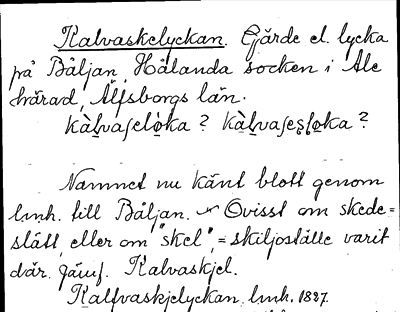 Kalvaskelyckan. Gjärde el. lycka
på Båljan, Hålanda socken i Ale
härad, Älfsborgs län.
kàl̠vaſelo̩ka? Kàl̠vaſes̩lo̩ka?
Namnet nu känt blott genom
lmh. till Båljan. Ovisst om skede=
slått, eller om "skel", = skiljoställe varit
där. Jämf. Kalvaskjel.
Kalfvaskjelyckan, lmh. 1827.